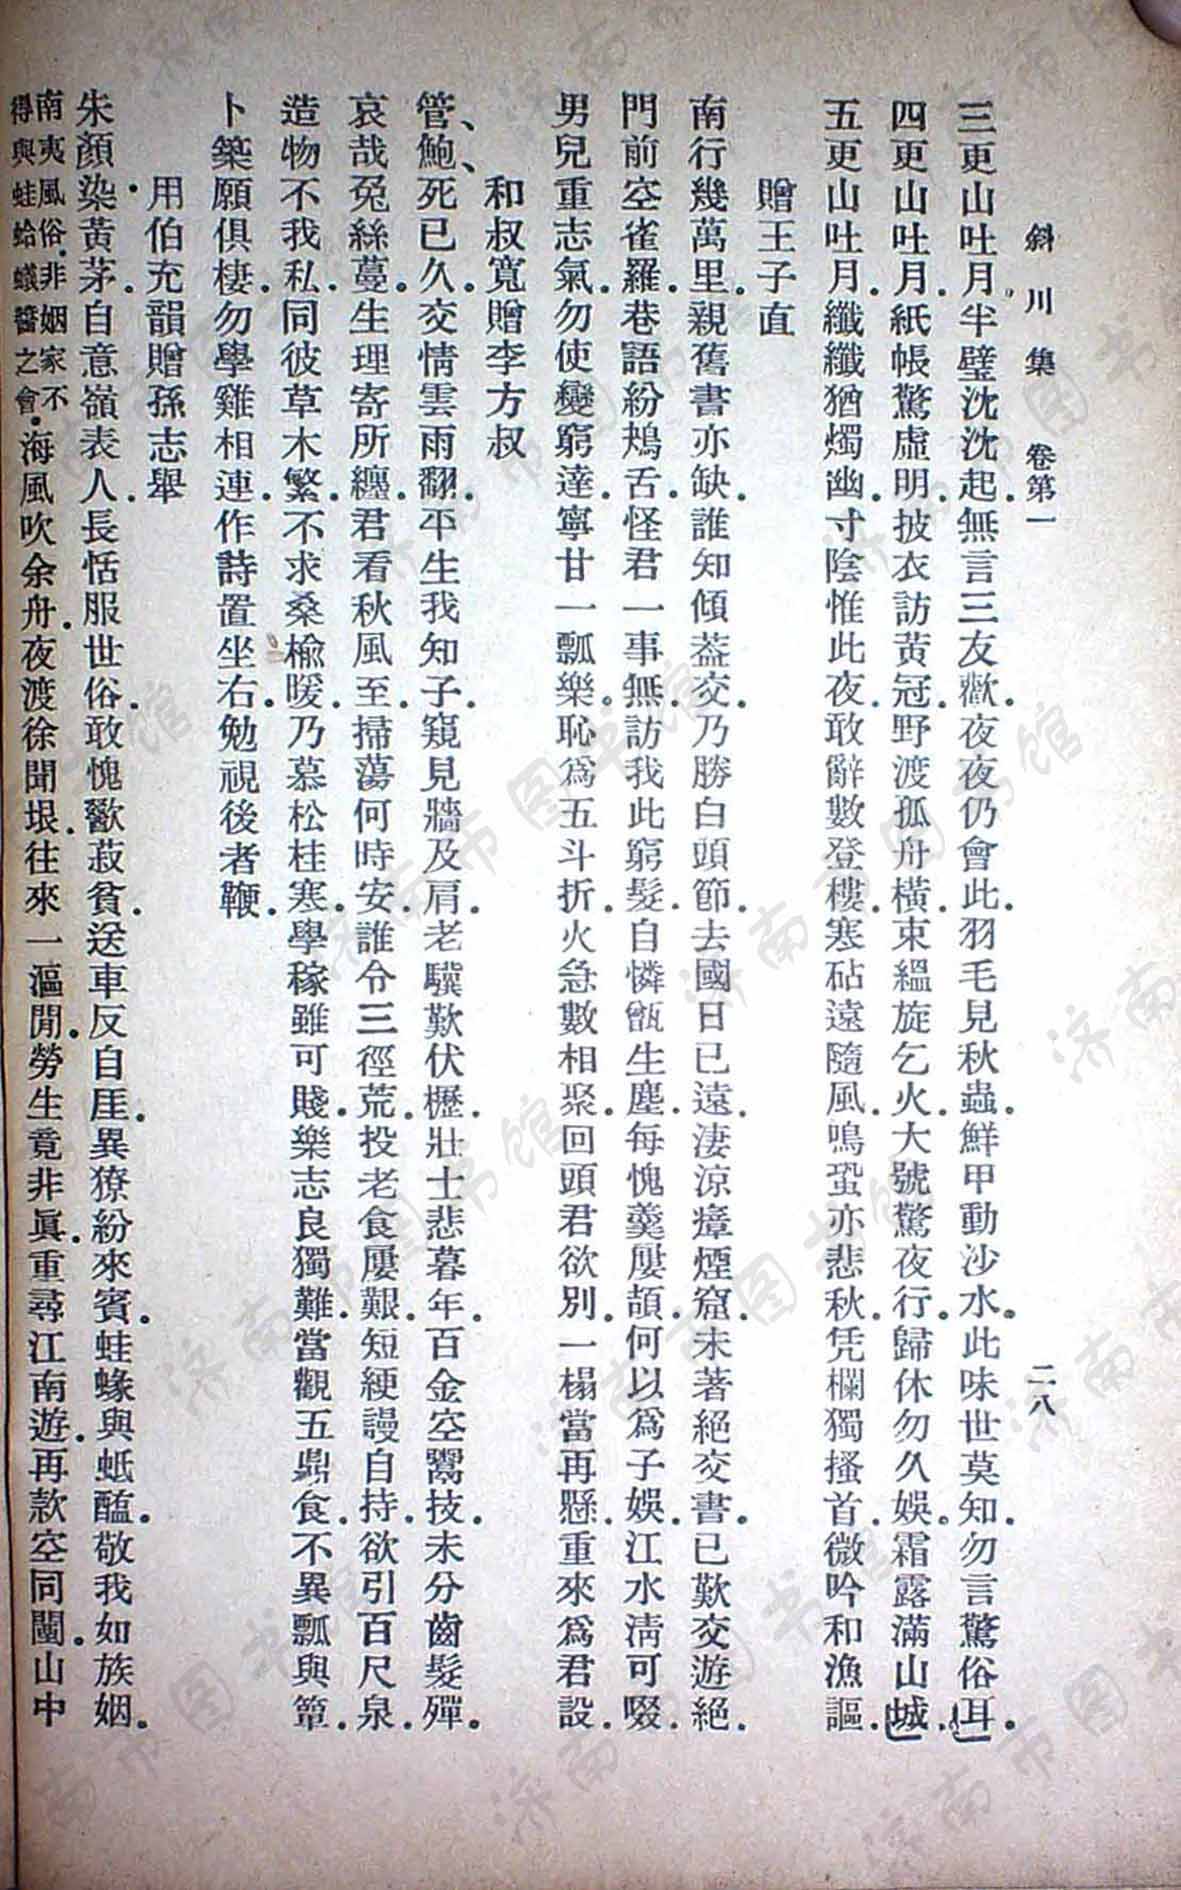 斜川集　卷第一　二八
三更山吐月．半璧沈沈起．無言三友歡．夜夜仍會此．羽毛見秋蟲．鮮甲動沙水．此味世莫知．勿言驚俗耳．
四更山吐月．紙帳驚虛明．披衣訪黃冠．野渡孤舟橫．束縕旋乞火．大號驚夜行．歸休勿久娛．霜露滿山城．
五更山吐月．纖纖猶燭幽．寸陰惟此夜．敢辭數登樓．寒砧遠隨風．鳴蛩亦悲秋．凭欄獨搔首．微吟和漁謳．
贈王子直
南行幾萬里．親舊書亦缺．誰知傾蓋交．乃勝白頭節．去國日已遠．淒涼瘴煙窟．未著絕交書．已歎交遊絕．
門前空雀羅．巷語紛鴂舌．怪君一事無．訪我此窮髮．自憐甑生塵．每愧羹屢頡．何以爲子娛．江水淸可啜．
男兒重志氣．勿使變窮達．寧甘一瓢樂．恥爲五斗折．火急數相聚．回頭君欲別．一榻當再懸．重來爲君設．
和叔寬贈李方叔
管、鮑、死已久．交情雲雨翻．平生我知子．窺見牆及肩．老驥歎伏櫪．壯士悲暮年．百金空鬻技．未分齒髮殫．
哀哉兔絲蔓．生理寄所纏．君看秋風至．掃蕩何時安．誰令三徑荒．投老食屢艱．短綆謾自持．欲引百尺泉．
造物不我私．同彼草木繁．不求桑楡暖．乃慕松桂寒．學稼雖可賤．樂志良獨難．當觀五鼎食．不異瓢與簞．
卜築願俱棲．勿學雞相連．作詩置坐右．勉視後者鞭．
用伯充韻贈孫志舉
朱顏染黃茅．自意嶺表人．長恬服世俗．敢愧歠菽貧．送車反自厓．異獠紛來賓．蛙蝝與蚳醢．敬我如族姻．
南夷風俗．非姻家不
得與蛙蛤蟻醬之會．海風吹余舟．夜渡徐聞垠．往來一漚閒．勞生竟非眞．重尋江南遊．再款空同闉．山中